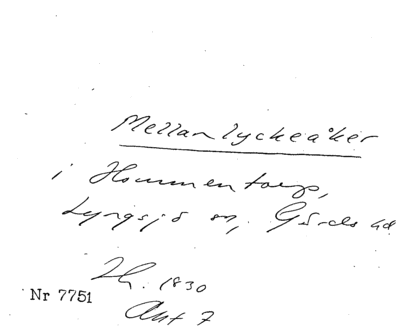 Mellanlyckeåker
i Hommentorp,
Lyngsjö sn, Gärds hd
Lh. 1830
Nr 7751
Akt 7